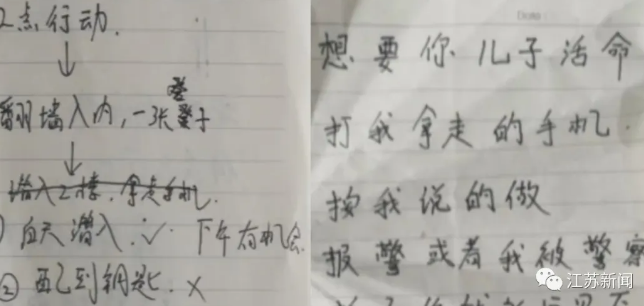 2点行动.
↓
翻墙入内,一张凳子
↓
潜入2楼.拿走手机.
白天潜入.✓. 下午有机会.
② 配到钥匙.×
想要你儿子活命
打我拿走的手机.
按我说的做
报警或者我被警察
江苏新闻